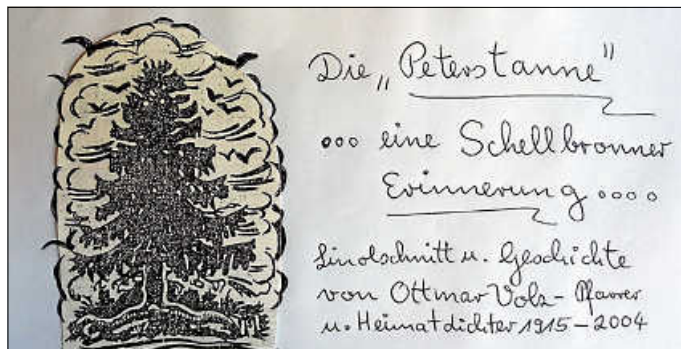 Die „Peterstanne"
... eine Schellbronner
Erinnerung ....
Linolschnitt u. Geschichte
von Ottmar Volz - Pfarrer
u. Heimatdichter 1915 - 2004